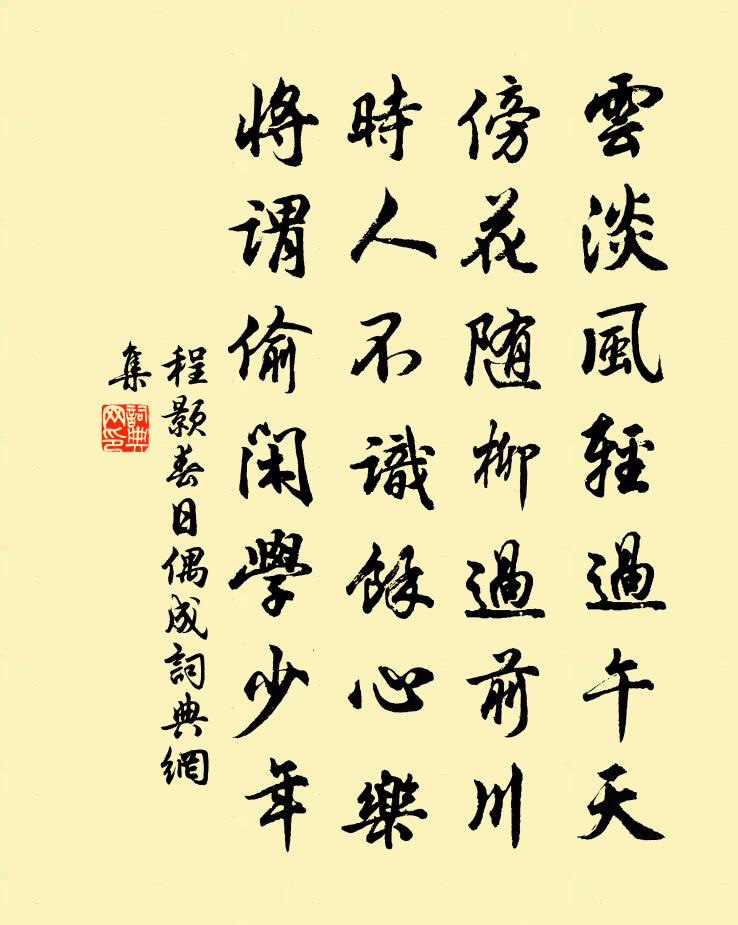 雲淡風輕過午天
傍花随柳過前川
時人不識餘心樂
将謂偷闲學少年
程颢春日偶成詞典網
集
詞典
网印